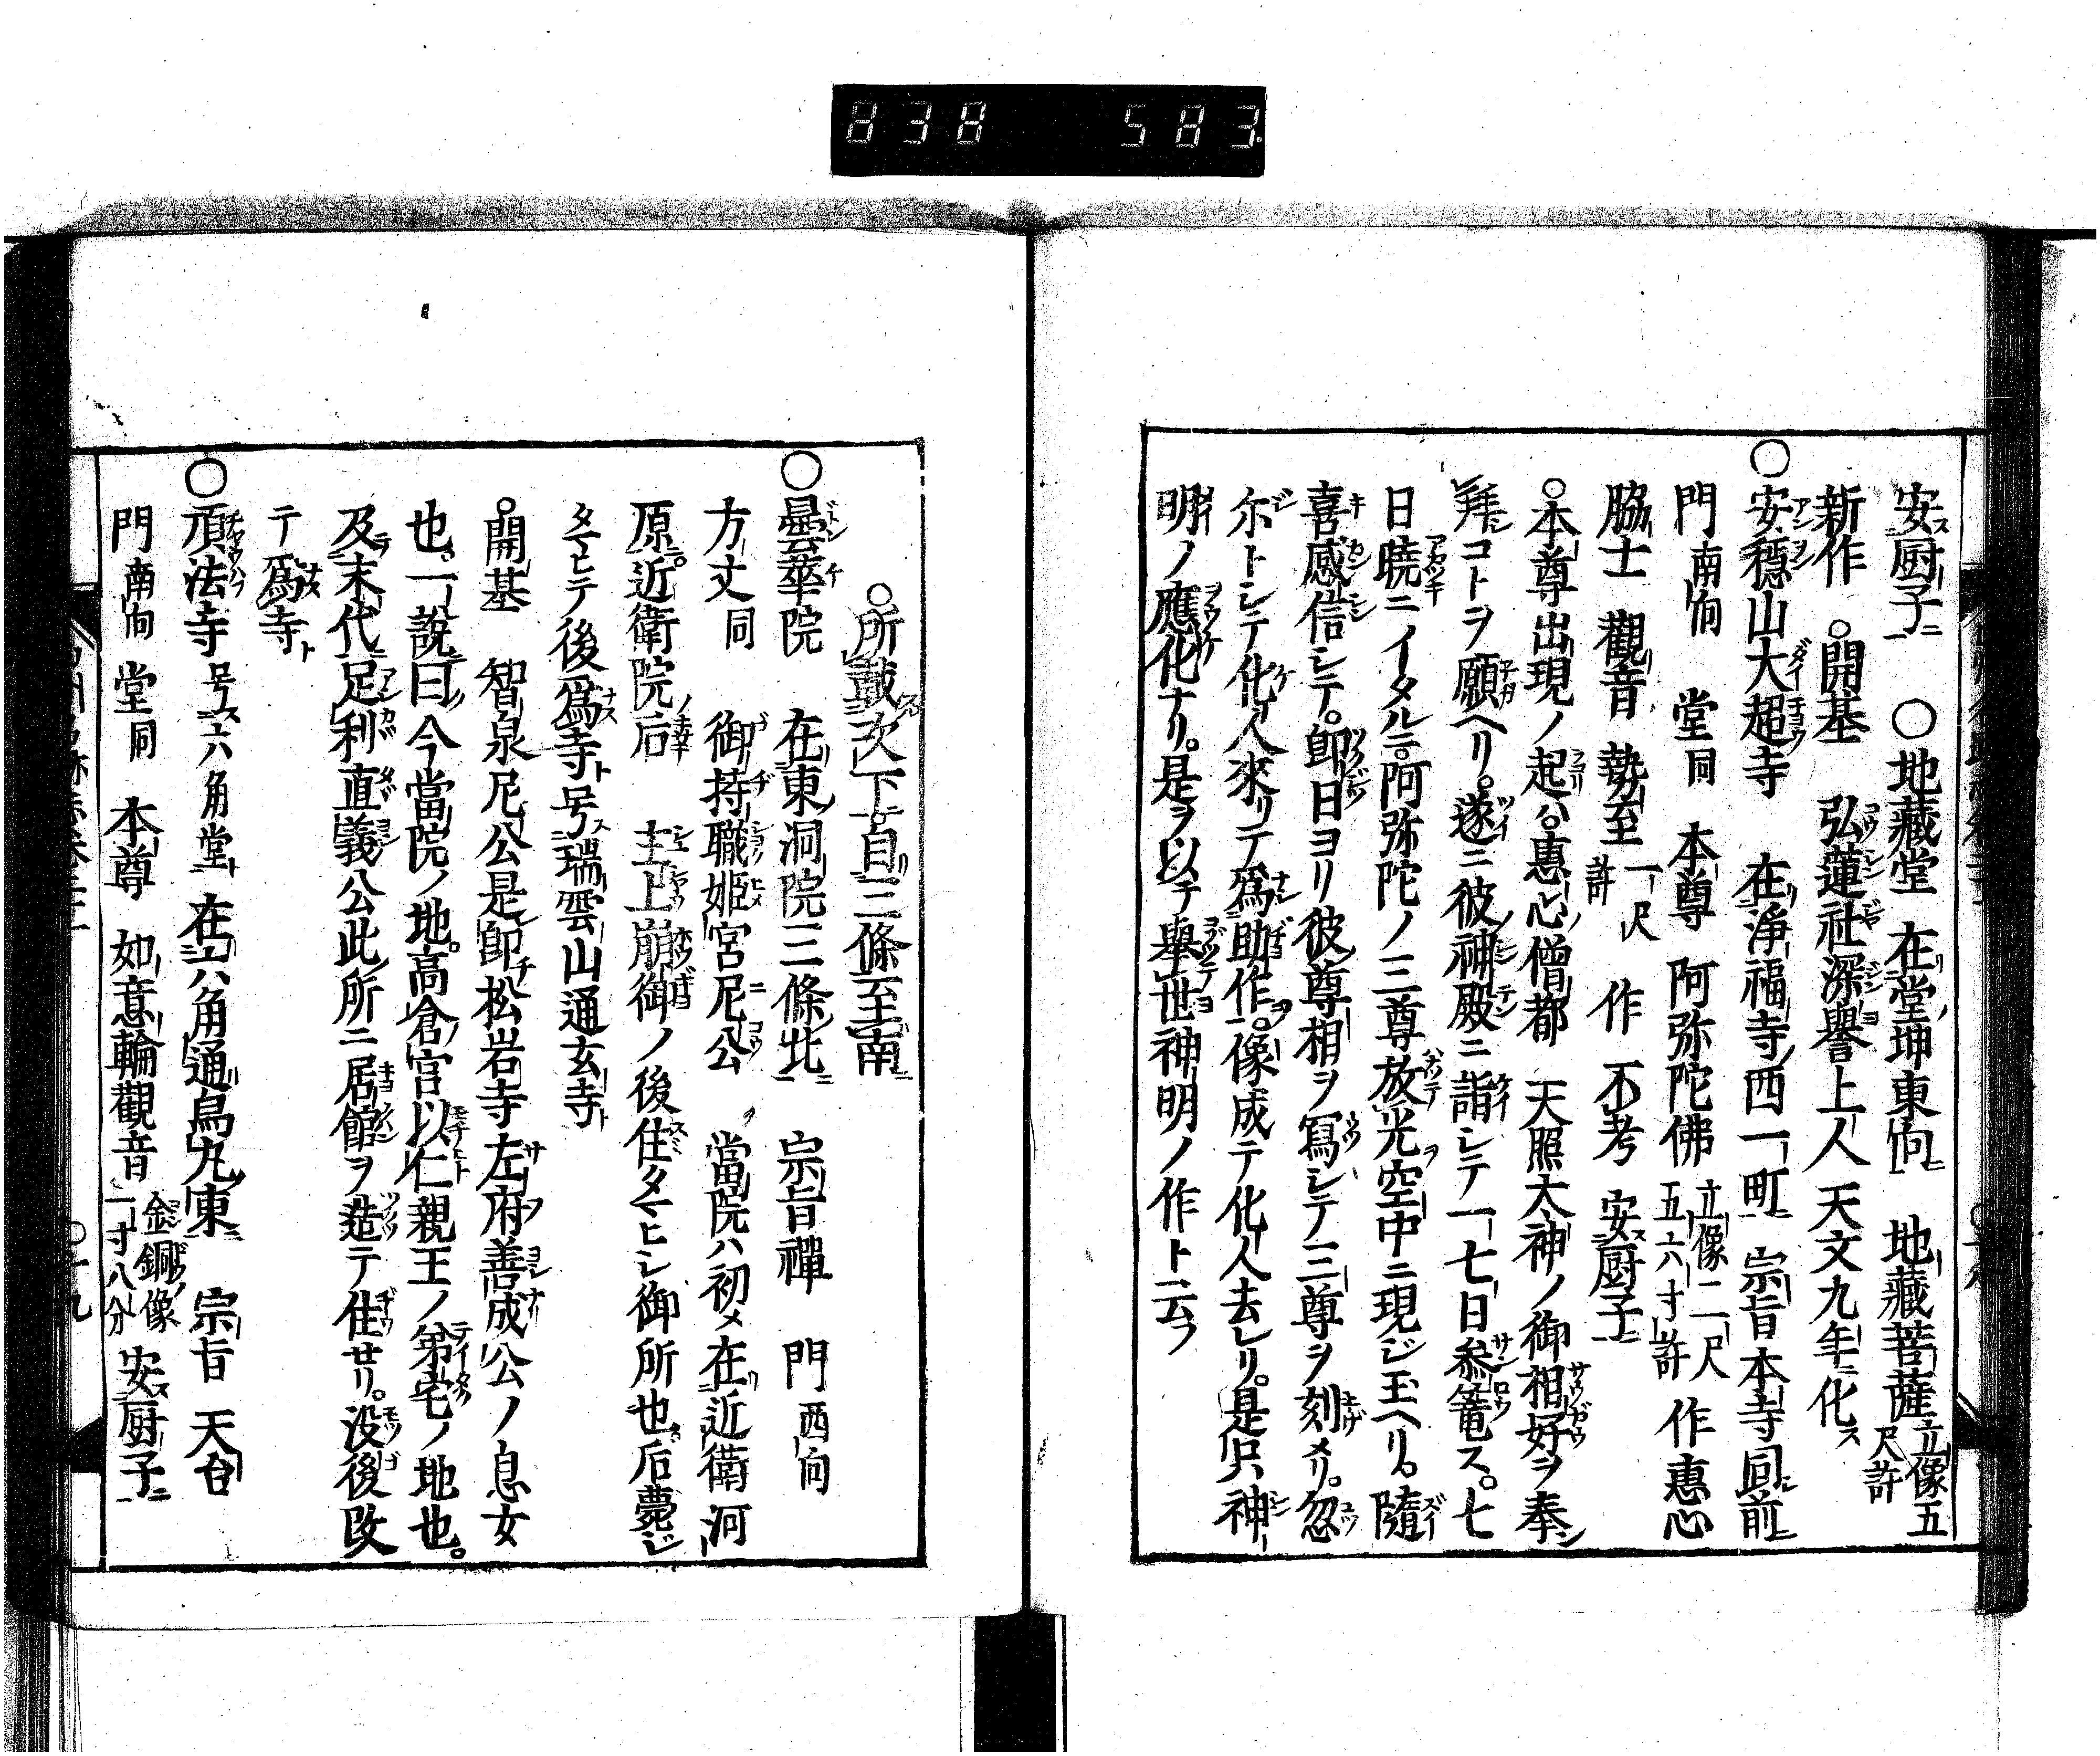 838 583
安ス厨子ニ 〇地藏堂 在リ堂ノ坤東向ニ 地藏菩薩立像五尺許
新作 〇開基 弘蓮社深譽上人天文九年ニ化ス
〇安穩山大超寺 在リ淨福寺ノ西一町ニ 宗旨本寺同前ニ
門南向 堂同 本尊 阿弥陀佛立像二尺五六寸許 作惠心
脇士 觀音 勢至一尺許 作 不考 安ス厨子ニ
〇本尊出現ノ起ハ惠心ノ僧都 天照太神ノ御相好ヲ奉ン
拜シコトヲ願ヘリ。遂ニ彼ノ神殿ニ詣シテ一七日参篭ス。七
日曉ニイタルニ。阿弥陀ノ三尊放テ光ヲ空中ニ現ジ玉ヘリ。隨
喜感信シテ。卽日ヨリ彼尊相ヲ寫シテ三尊ヲ刻メリ。忽
尓トシテ化人來リテ爲助作ヲ。像成テ化人去レリ。是只神
明ノ應化ナリ。是ヲ以テ擧世神明ノ作ト云フ
〇所載次下ニ。自三條至南ニ
〇曇華院 在東洞院三條ノ北ニ 宗旨禪 門西向
方丈同 御持職姫宮尼公 當院ハ初メ在リ近衛河
原ニ。近衛院ノ后 主上崩御ノ後住タマヒシ御所也。后薨ジ
タマヒテ後爲寺ト号ス瑞雲山通玄寺ト
〇開基 智泉尼公是卽チ松岩寺左府善成公ノ息女
也。一說ニ曰ク今當院ノ地。高倉ノ宮以仁親王ノ第宅ノ地也。
及テ末代ニ足利直義公此ノ所ニ居館ヲ造テ住セリ。没後改
テ爲ス寺ト
〇頂法寺号ス六角堂ト 在六角通烏丸東ニ 宗旨 天台
門南向 堂同 本尊 如意輪觀音金銅ノ像一寸八分 安ス厨子ニ